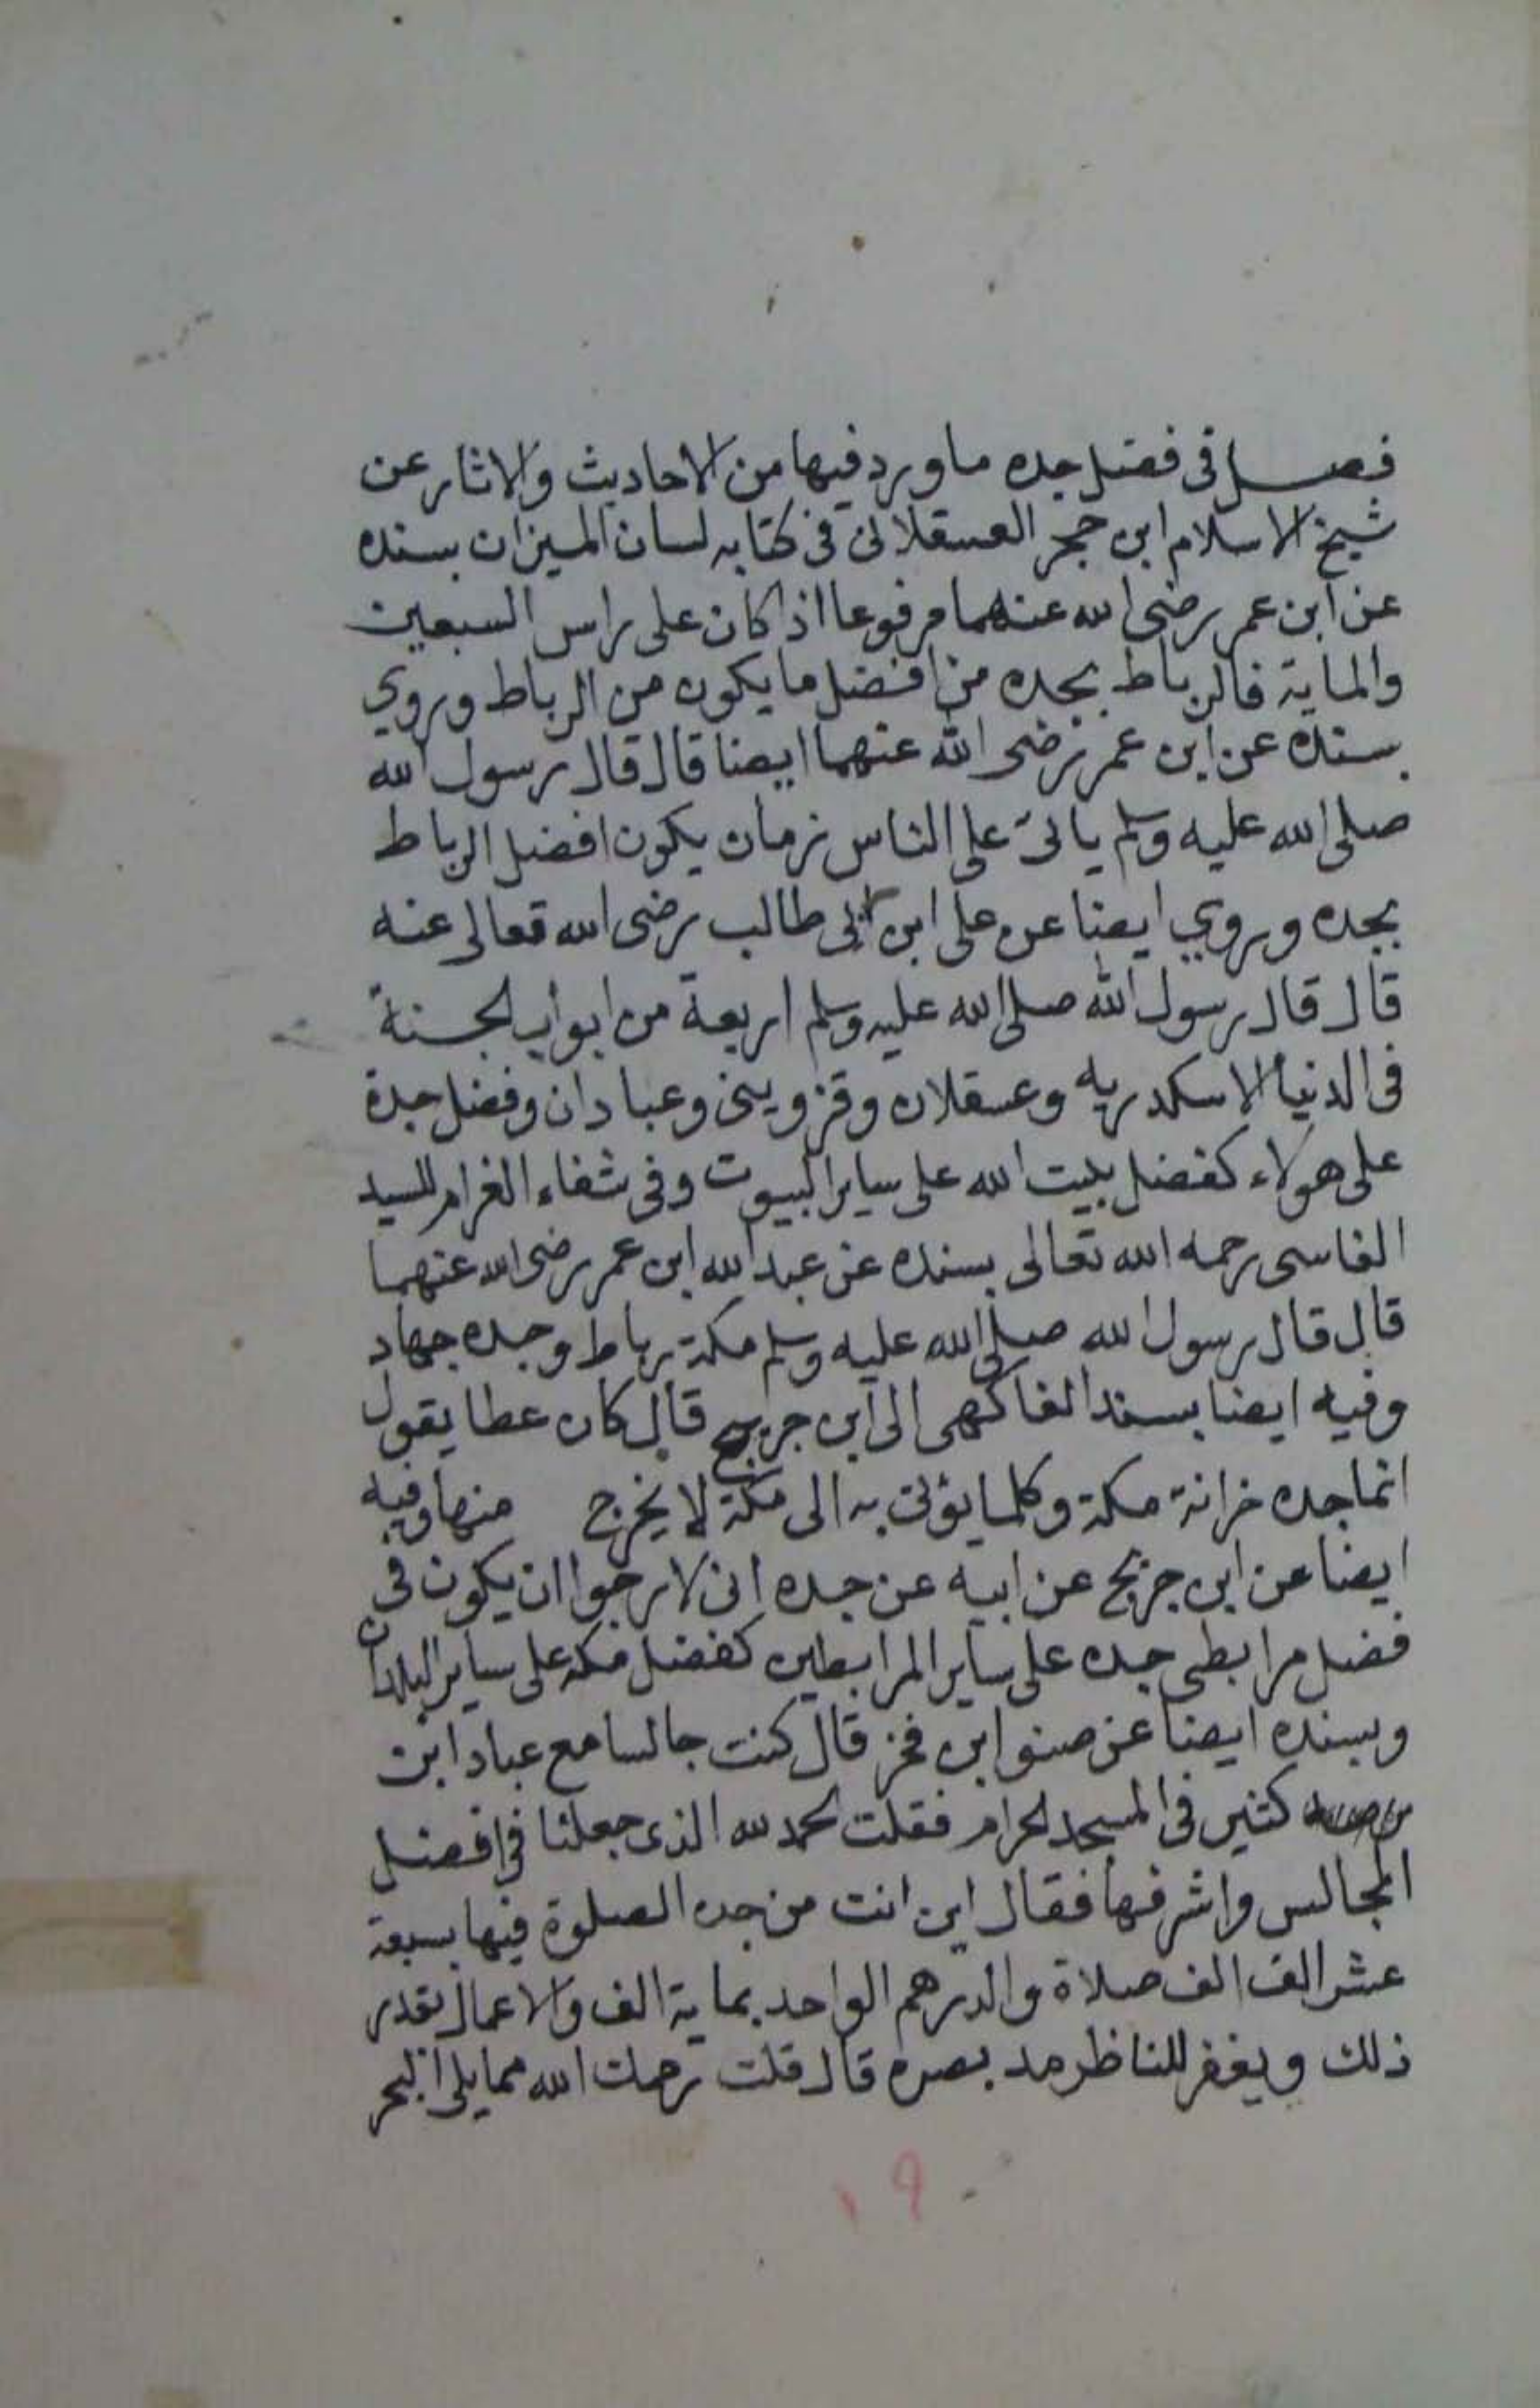 فصل فى فضل جده ما ورد فيها من الاحاديث والاثار عن
شيخ الاسلام ابن حجر العسقلانى فى كتابه لسان الميزان بسنده
عن ابن عمر رضى الله عنهما مرفوعا اذا كان على راس السبعين
والماية فالرباط بجده من افضل ما يكون من الرباط وروي
بسنده عن ابن عمر رضى الله عنهما ايضا قال قال رسول الله
صلى الله عليه وسلم ياتى على الناس زمان يكون افضل الرباط
بجده وروي ايضا عن على ابن ابى طالب رضى الله تعالى عنه
قال قال رسول الله صلى الله عليه وسلم اربعة من ابواب الجنة
فى الدنيا الاسكدريه وعسقلان وقزوينى وعبادان وفضل جدة
على هولاء كفضل بيت الله على ساير البيوت وفى شفاء الغرام للسيد
الفاسى رحمه الله تعالى بسنده عن عبد الله ابن عمر رضى الله عنهما
قال قال رسول الله صلى الله عليه وسلم مكة رباط وجده جهاد
وفيه ايضا بسند الفاكهى الى ابن جريج قال كان عطا يقول
انما جده خزانة مكة وكلما يؤتى به الى مكة لا يخرج منها وفيه
ايضا عن ابن جريج عن ابيه عن جده انى لارجوا ان يكون فى
فضل مرابطى جده على ساير المرابطين كفضل مكه على ساير البلدان
وبسنده ايضا عن صنو ابن فخر قال كنت جالسا مع عباد ابن
كثير فى المسجد الحرام فقلت الحمد لله الذى جعلنا فى افضل
المجالس واشرفها فقال اين انت من جده الصلوة فيها بسبعة
عشر الف الف صلاة والدرهم الواحد بماية الف والاعمال بقدر
ذلك ويغفر للناظر مد بصره قال قلت رحمك الله مما يلى البحر
١٩